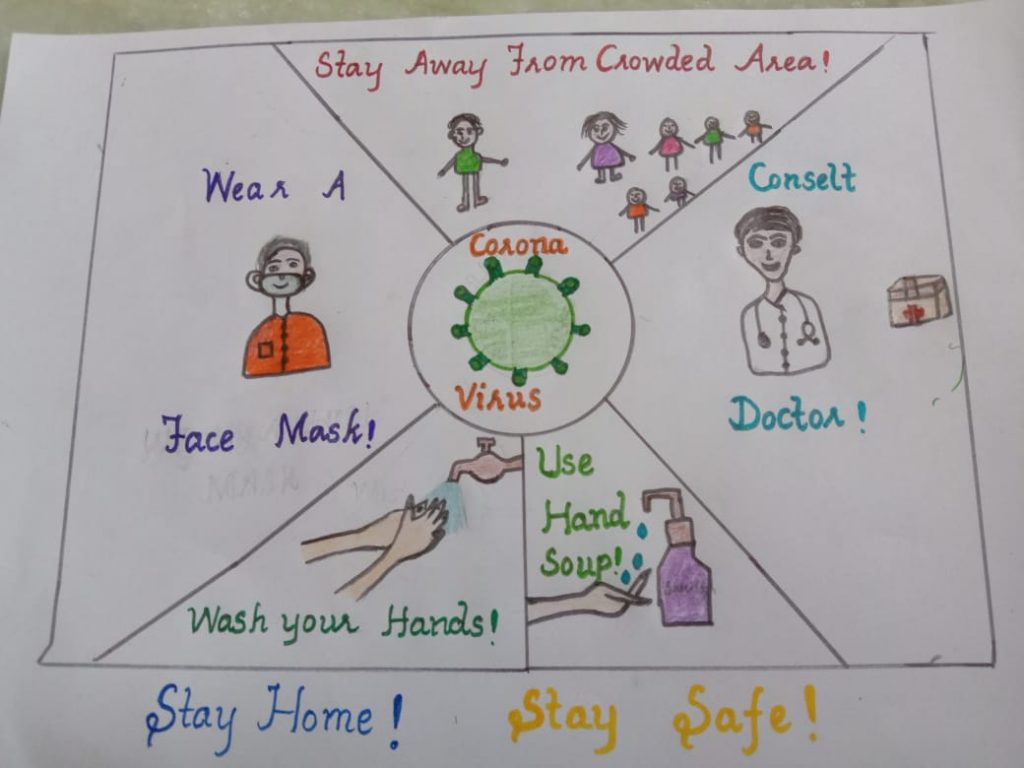 Stay Away From Crowded Area!
Wear A
Face Mask!
Corona
Virus
Conselt
Doctor!
Wash your Hands!
Use
Hand
Soup!
Stay Home! Stay Safe!